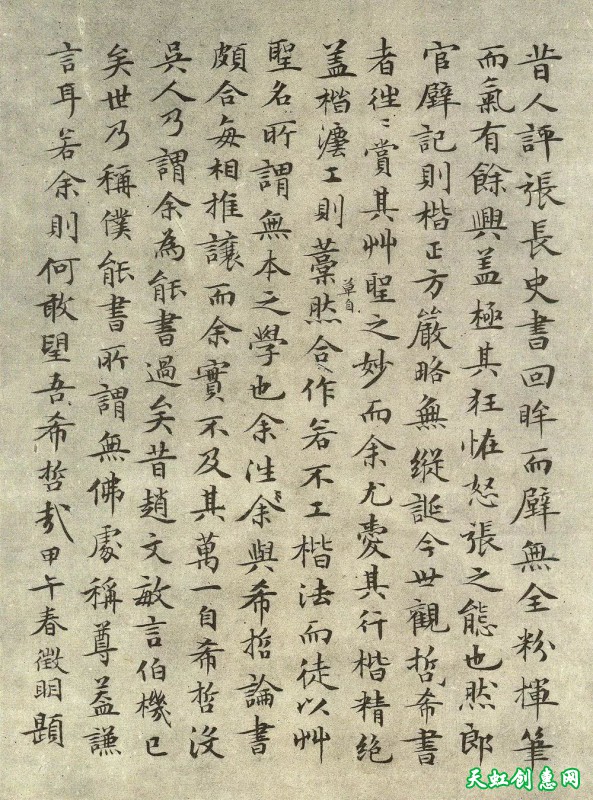 昔人評張長史書回眸而壁無全粉揮筆
而氣有餘興蓋極其狂怪怒張之態也然郎
官壁記則楷正方嚴略無縱誕今世觀哲希書
者徃〻賞其艸聖之妙而余尤愛其行楷精絕
蓋楷灋工則藁然合作若不工楷法而徒以艸
草自
聖名所謂無本之學也余往余與希哲論書
頗合每相推讓而余實不及其萬一自希哲沒
吳人乃謂余為能書過矣昔趙文敏言伯機已
矣世乃稱僕能書所謂無佛處稱尊蓋謙
言耳若余則何敢望吾希哲哉甲午春徵明題
天虹创意网